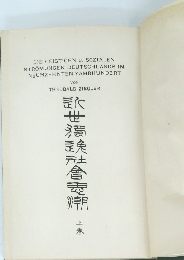 DIE GEISTIGEN U. SOZIALEN
STRÖMUNGEN DEUTSCHLANDS IM
NEUNZEHNTEN JAHRHUNDERT
VON
THEOBALD ZIEGLER
近世獨逸社會思潮
上卷